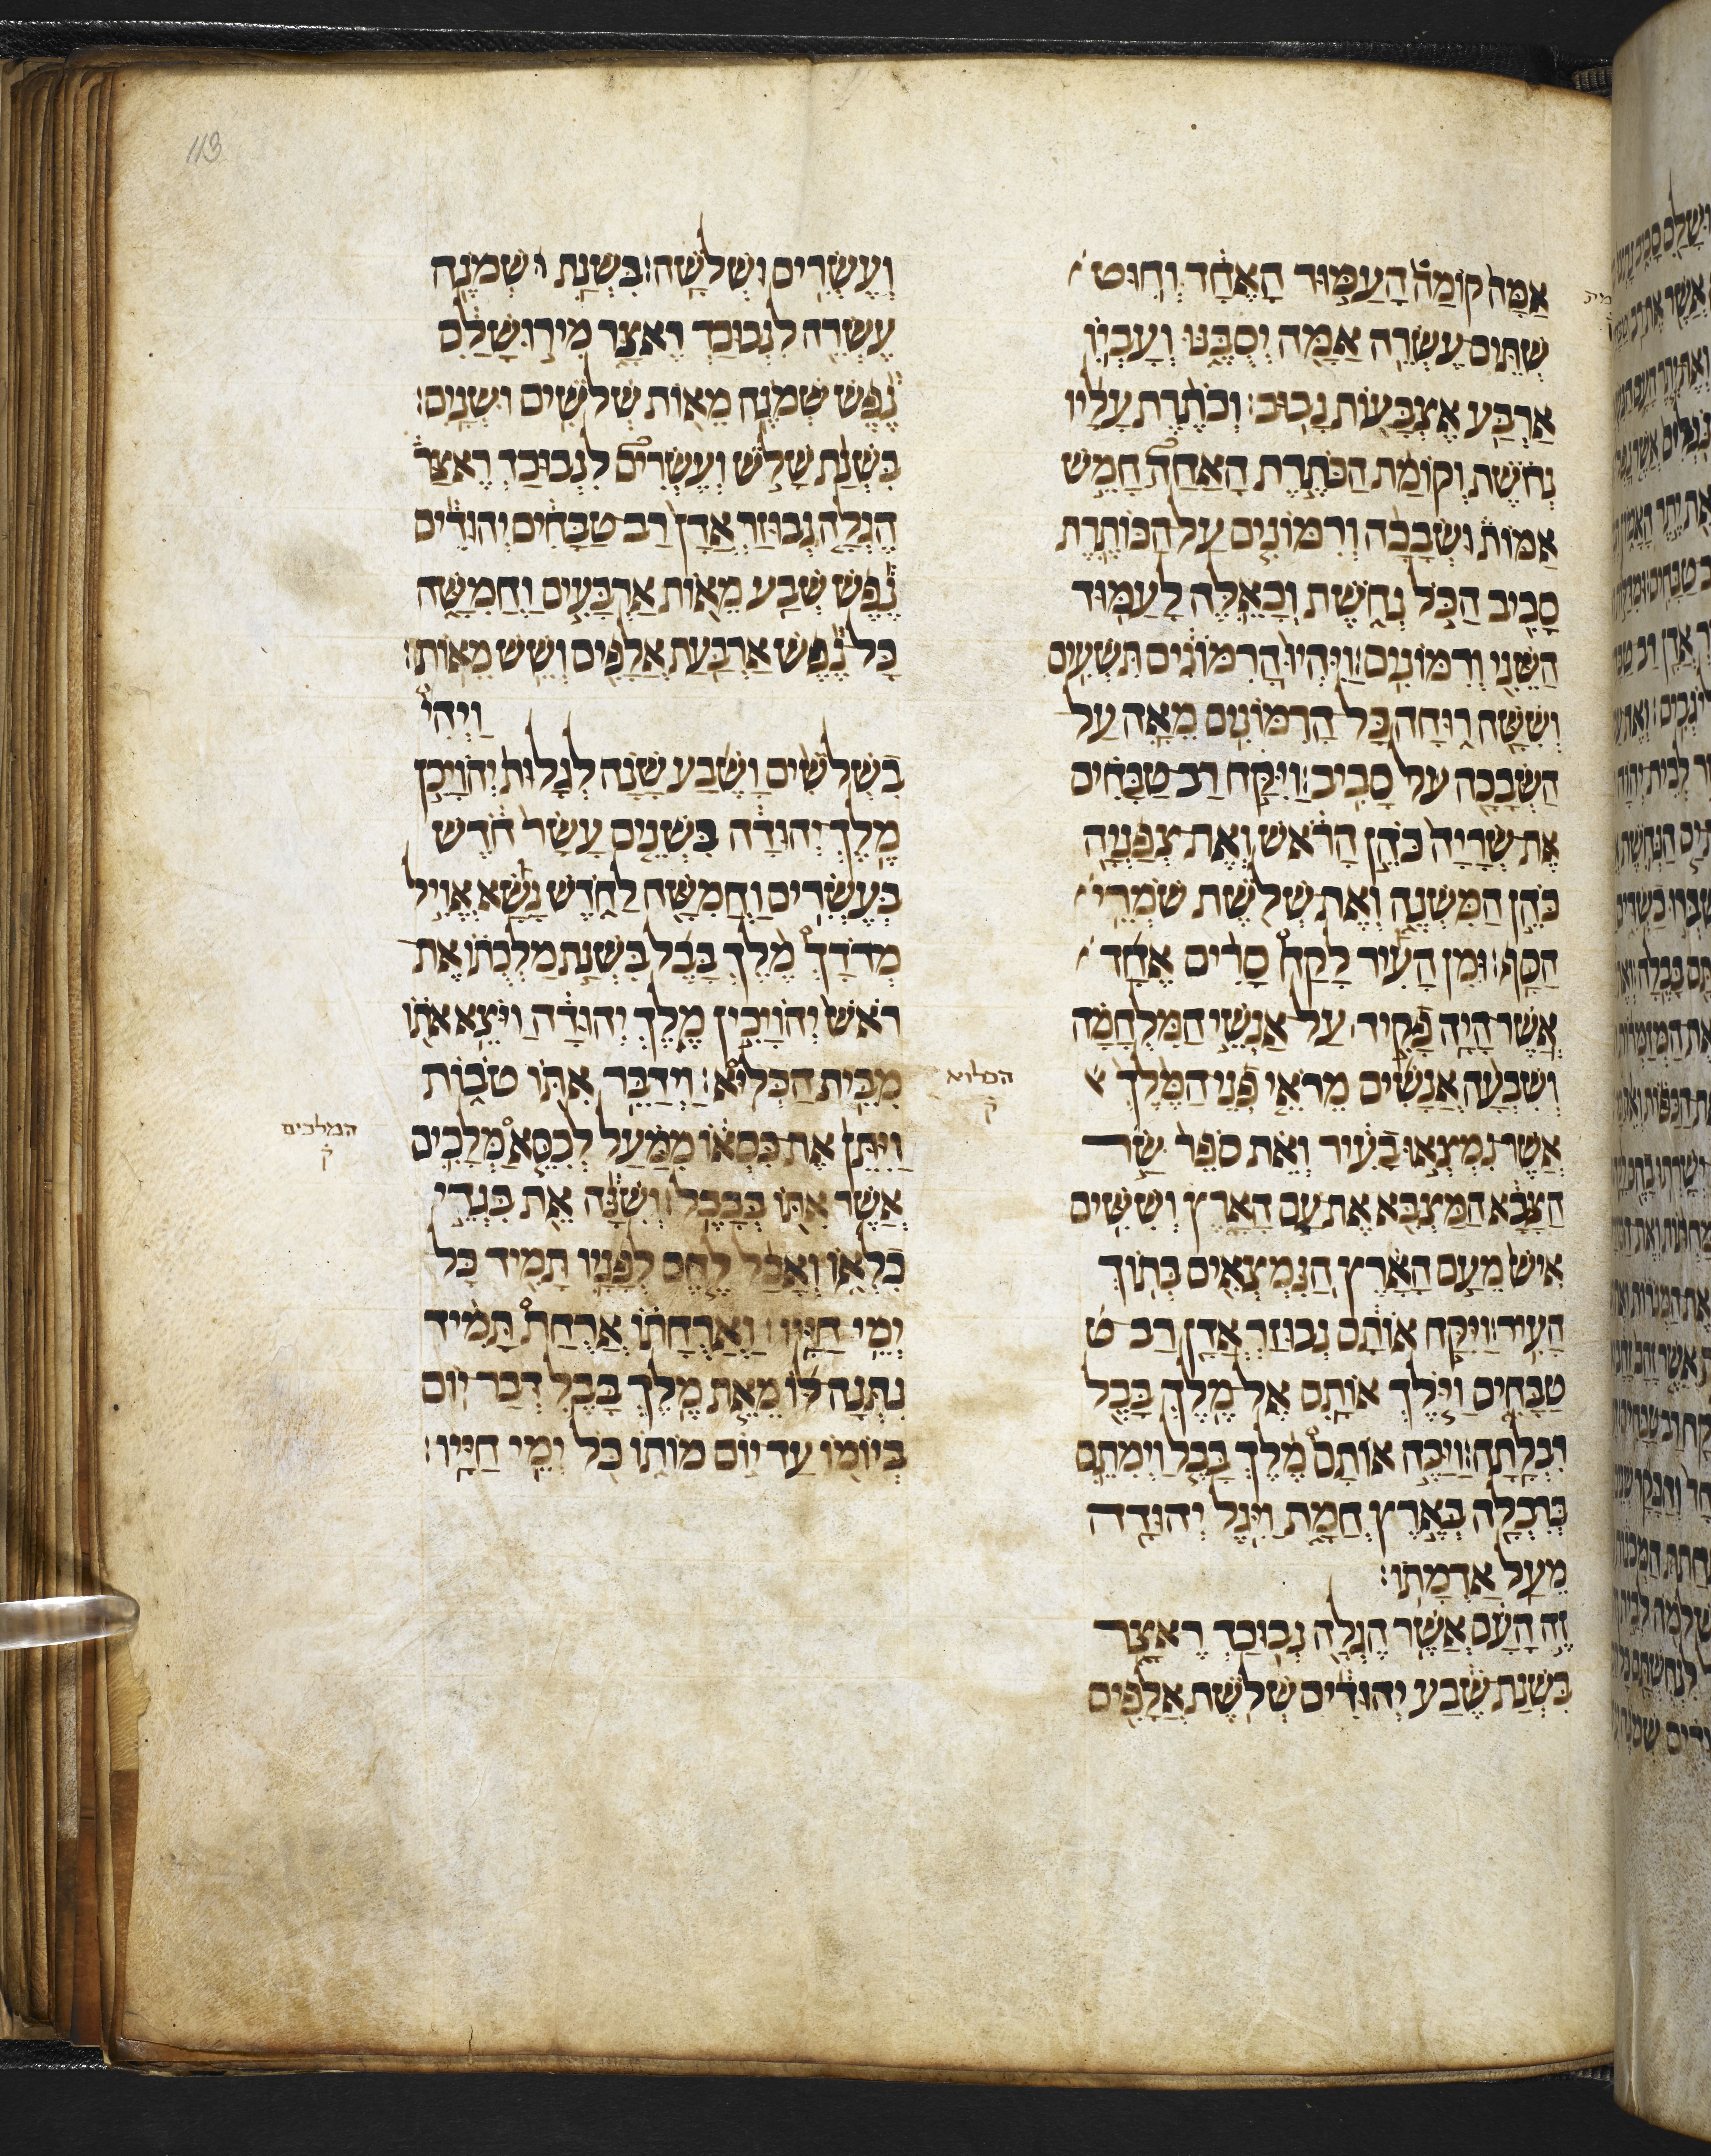 113
אַמָּה קוֹמַה הָעַמּוּד הָאֶחָד וְחוּט
שְׁתֵּים עֶשְׂרֵה אַמָּה יְסֻבֶּנּוּ וְעָבְיוֹ
אַרְבַּע אֶצְבָּעוֹת נָבוּב׃ וְכֹתֶרֶת עָלָיו
נְחֹשֶׁת וְקוֹמַת הַכֹּתֶרֶת הָאַחַת חָמֵשׁ
אַמּוֹת וּשְׂבָכָה וְרִמּוֹנִים עַל הַכּוֹתֶרֶת
סָבִיב הַכֹּל נְחֹשֶׁת וְכָאֵלֶּה לָעַמּוּד
הַשֵּׁנִי וְרִמּוֹנִים׃ וַיִּהְיוּ הָרִמּוֹנִים תִּשְׁעִים
וְשִׁשָּׁה רוּחָה כָּל הָרִמּוֹנִים מֵאָה עַל
הַשְּׂבָכָה עַל סָבִיב׃ וַיִּקַּח רַב טַבָּחִים
אֶת שְׂרָיָה כֹּהֵן הָרֹאשׁ וְאֶת צְפַנְיָה
כֹּהֵן הַמִּשְׁנֶה וְאֶת שְׁלֹשֶׁת שֹׁמְרֵי
הַסַּף׃ וּמִן הָעִיר לָקַח סָרִיס אֶחָד
אֲשֶׁר הָיָה פָקִיד עַל אַנְשֵׁי הַמִּלְחָמָה
וְשִׁבְעָה אֲנָשִׁים מֵרֹאֵי פְנֵי הַמֶּלֶךְ
אֲשֶׁר נִמְצְאוּ בָעִיר וְאֵת סֹפֵר שַׂר
הַצָּבָא הַמַּצְבִּא אֶת עַם הָאָרֶץ וְשִׁשִּׁים
אִישׁ מֵעַם הָאָרֶץ הַנִּמְצְאִים בְּתוֹךְ
הָעִיר׃ וַיִּקַּח אוֹתָם נְבוּזַרְאֲדָן רַב ט
טַבָּחִים וַיֹּלֶךְ אוֹתָם אֶל מֶלֶךְ בָּבֶל
רִבְלָתָה׃ וַיַּכֶּה אוֹתָם מֶלֶךְ בָּבֶל וַיְמִתֵם
בְּרִבְלָה בְּאֶרֶץ חֲמָת וַיִּגֶל יְהוּדָה
מֵעַל אַדְמָתוֹ׃
זֶה הָעָם אֲשֶׁר הֶגְלָה נְבוּכַדְ רֶאצַּר
בִּשְׁנַת שֶׁבַע יְהוּדִים שְׁלֹשֶׁת אֲלָפִים
וְעֶשְׂרִים וּשְׁלֹשָׁה׃ בִּשְׁנַת שְׁמֹנֶה
עֶשְׂרֵה לִנְבוּכַדְ רֶאצַּר מִירוּשָׁלַ͏ִם
נֶפֶשׁ שְׁמֹנֶה מֵאוֹת שְׁלֹשִׁים וּשְׁנָיִם׃
בִּשְׁנַת שָׁלֹשׁ וְעֶשְׂרִים לִנְבוּכַדְ רֶאצַּר
הֶגְלָה נְבוּזַרְ אֲדָן רַב טַבָּחִים יְהוּדִים
נֶפֶשׁ שְׁבַע מֵאוֹת אַרְבָּעִים וַחֲמִשָּׁה
כָּל נֶפֶשׁ אַרְבַּעַת אֲלָפִים וְשֵׁשׁ מֵאוֹת׃
וַיְהִי
בִשְׁלֹשִׁים וָשֶׁבַע שָׁנָה לְגָלוּת יְהוֹיָכִן
מֶלֶךְ יְהוּדָה בִּשְׁנֵים עָשָׂר חֹדֶשׁ
בְּעֶשְׂרִים וַחֲמִשָּׁה לַחֹדֶשׁ נָשָׂא אֱוִיל
מְרֹדָךְ מֶלֶךְ בָּבֶל בִּשְׁנַת מַלְכֻתוֹ אֶת
רֹאשׁ יְהוֹיָכִין מֶלֶךְ יְהוּדָה וַיֹּצֵא אֹתוֹ
מִבֵּית הַכְּלִיא׃ וַיְדַבֵּר אִתּוֹ טֹבוֹת
הכלוא
ק
וַיִּתֵּן אֶת כִּסְאוֹ מִמַּעַל לְכִסֵּא מְלָכִים
המלכים
ק
אֲשֶׁר אִתּוֹ בְּבָבֶל׃ וְשִׁנָּה אֵת בִּגְדֵי
כִלְאוֹ וְאָכַל לֶחֶם לְפָנָיו תָּמִיד כָּל
יְמֵי חַיָּיו׃ וַאֲרֻחָתוֹ אֲרֻחַת תָּמִיד
נִתְּנָה לּוֹ מֵאֵת מֶלֶךְ בָּבֶל דְּבַר יוֹם
בְּיוֹמוֹ עַד יוֹם מוֹתוֹ כֹּל יְמֵי חַיָּיו׃